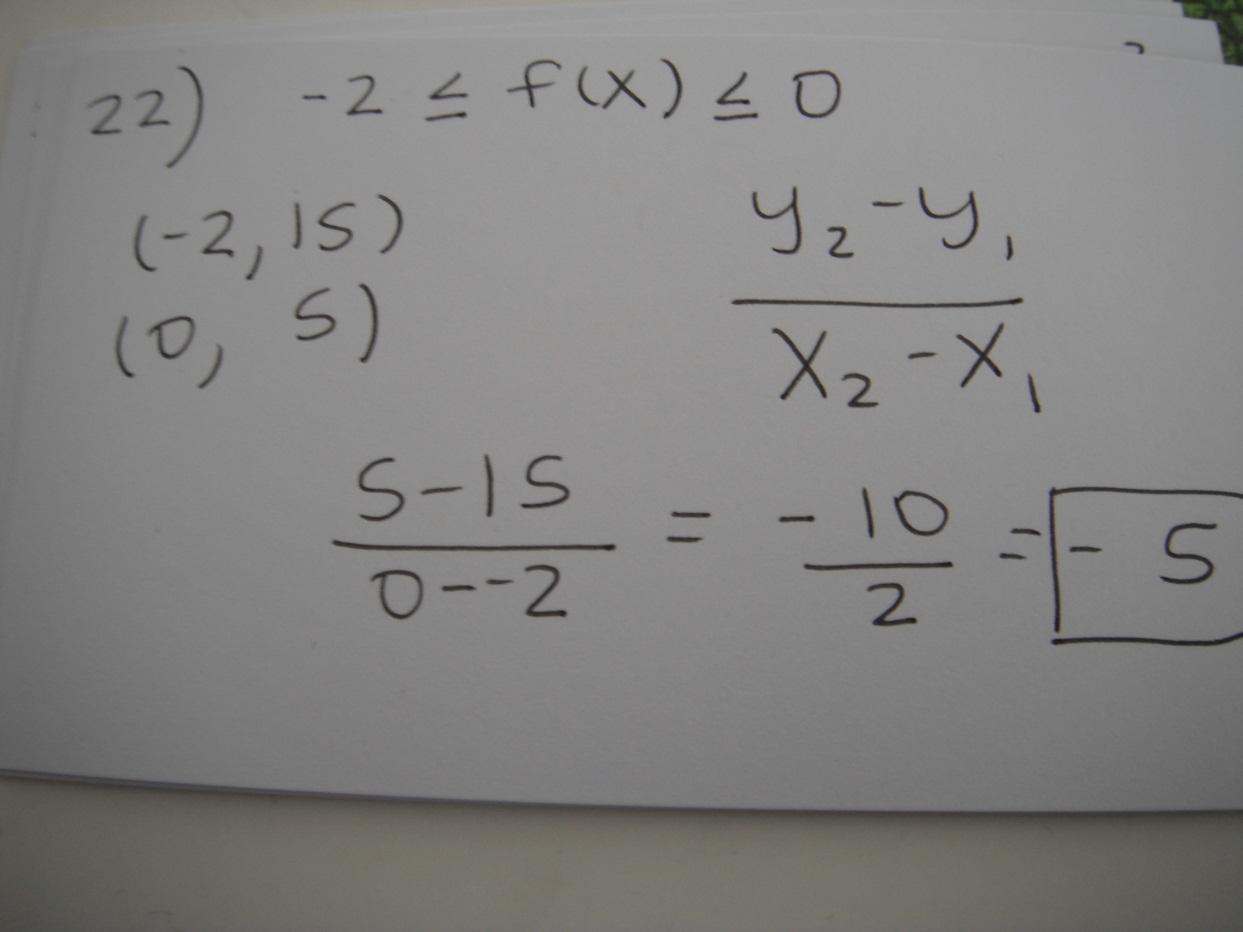 22) -2 ≤ f(x) ≤ 0
(-2, 15)
(0, 5)
y₂ - y₁
x₂ - x₁
5-15 / 0--2 = -10 / 2 = - 5